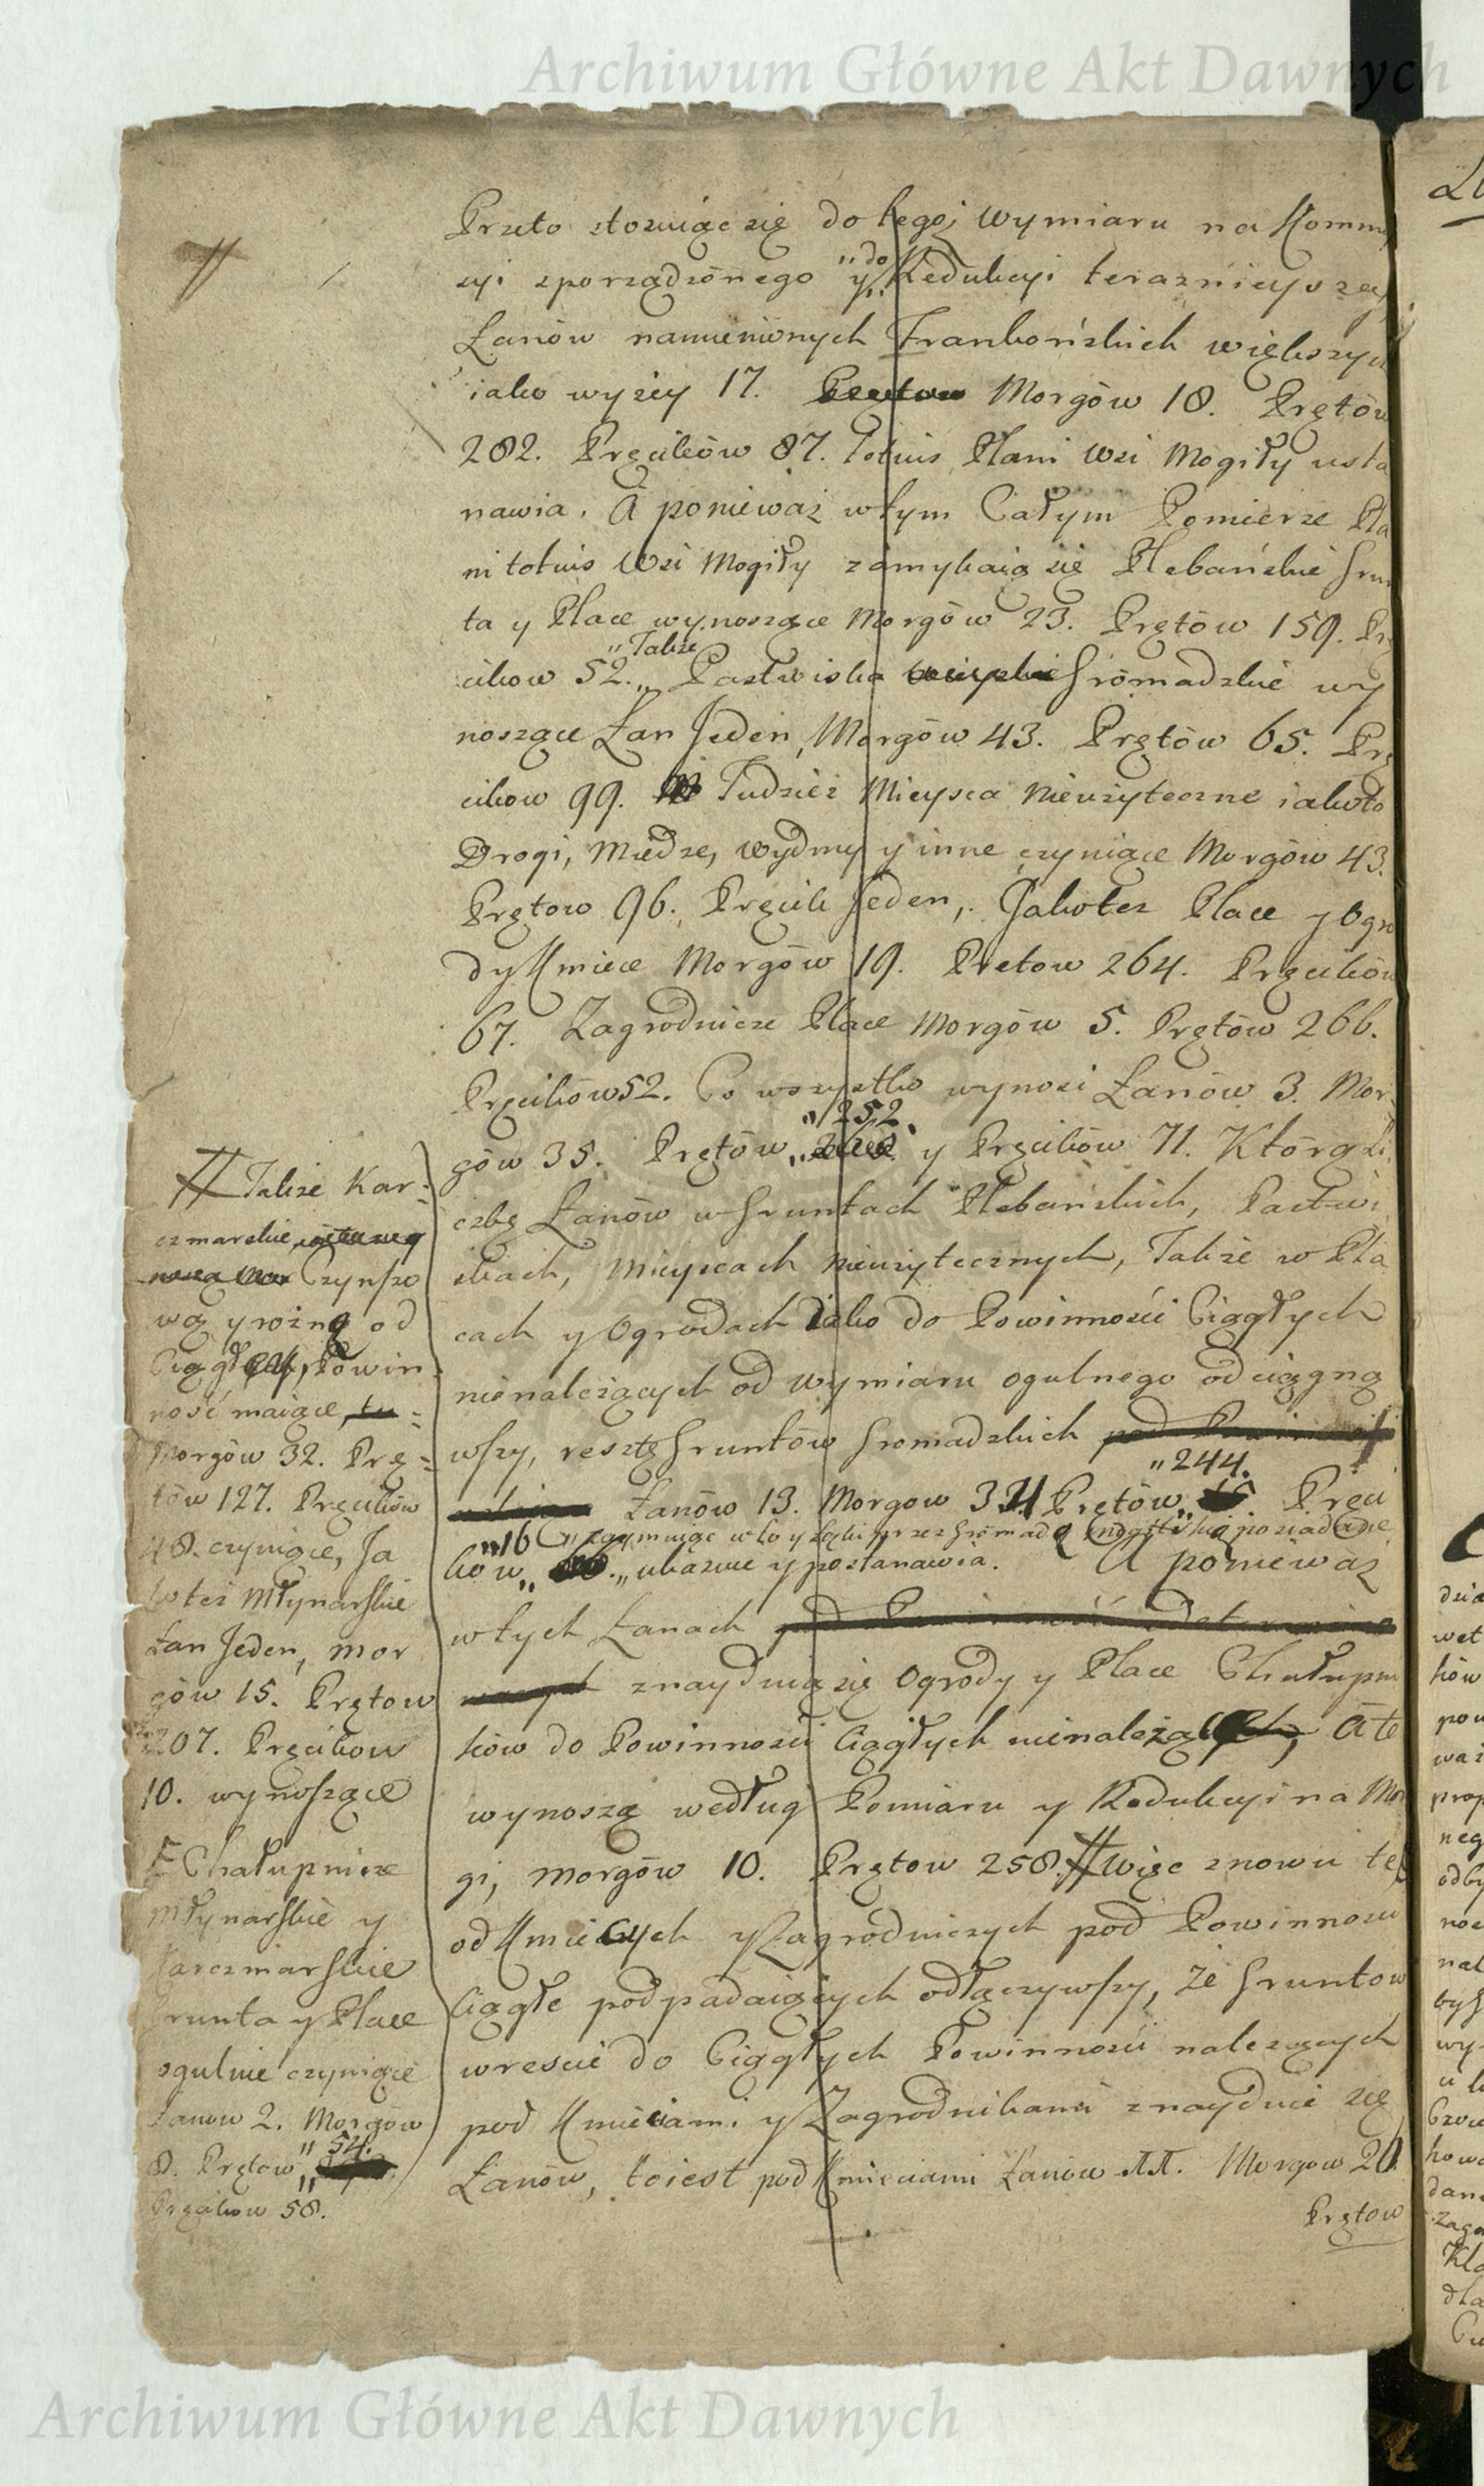 Archiwum Główne Akt Dawnych
Przeto stosuiąc się do tegoj wymiaru na Kommi
syi zporządzonego "do y Redukcyi teraznieyszey
Łanów namienionych Frankońskich większych
iako wyżey 17. Morgów 18. Prętów
282. Pręcików 87. Totius Plani Wsi Mogiły usta
nawia. A ponieważ w tym Całym Pomierze Pla
ni totius Wsi Mogiły zamykaią się Plebańskie Grun
ta y Place wynoszące Morgów 23. Prętów 159. Prę
cikow 52. "Takze Pastwiska Gromadzkie wy
noszące Łan Jeden, Morgów 43. Prętów 65. Prę
cikow 99. Tudzież Mieysca Nieużyteczne iakoto
Drogi, Miedze, Wydmy y inne czyniące Morgów 43.
Prętow 96. Pręcik Jeden, Jakotez Place y Ogro
dy Kmiece Morgów 19. Pretow 264. Pręcików
67. Zagrodnicze Place Morgów 5. Prętów 266.
Pręcików 52. Co wszystko wynosi Łanów 3. Mor
gów 35. Prętów "252. y Pręcików 71. Którą Li
czbę Łanów w Gruntach Plebańskich, Pastwi
skach, Mieyscach Nieużytecznych, Także w Pla
cach y Ogrodach iako do Powinności Ciągłych
nienależących od wymiaru ogulnego odciągną
wszy, resztę Gruntów Gromadzkich
Łanów 13. Morgow 31 Prętów "244. Pręci
ków "16 ukazuie y postanawia. A ponieważ
w tych Łanach
znayduią się Ogrody y Place Chałupni
ków do Powinności Ciągłych nienależące, A te
wynoszą według Pomiaru y Redukcyi na Mor
gi, Morgów 10. Prętow 258. # Więc znowu te
od Kmiecych y Zagrodniczych pod Powinnosci
Ciągłe podpadaiących odłączywszy, że Gruntow
wreście do Ciągłych Powinności należących
pod Kmieciami y Zagrodnikami znayduie się
Łanów, to iest pod Kmieciami Łanow 11. Morgow 20
Prętow
# Takze Kar-
czmarskie Czynszo
wą y rożną od
Ciągłey, Powin
ność maiące
Morgów 32. Prę-
tów 127. Pręcików
48. czyniące, Ja
kotez Młynarskie
Łan Jeden, Mor
gów 15. Prętow
207. Pręcikow
10. wynoszące
Chałupnicze
Młynarskie y
Karczmarskie
Grunta y Place
ogulnie czyniące
Łanow 2. Morgów
8. Prętow "54.
Pręcikow 58.
Archiwum Główne Akt Dawnych